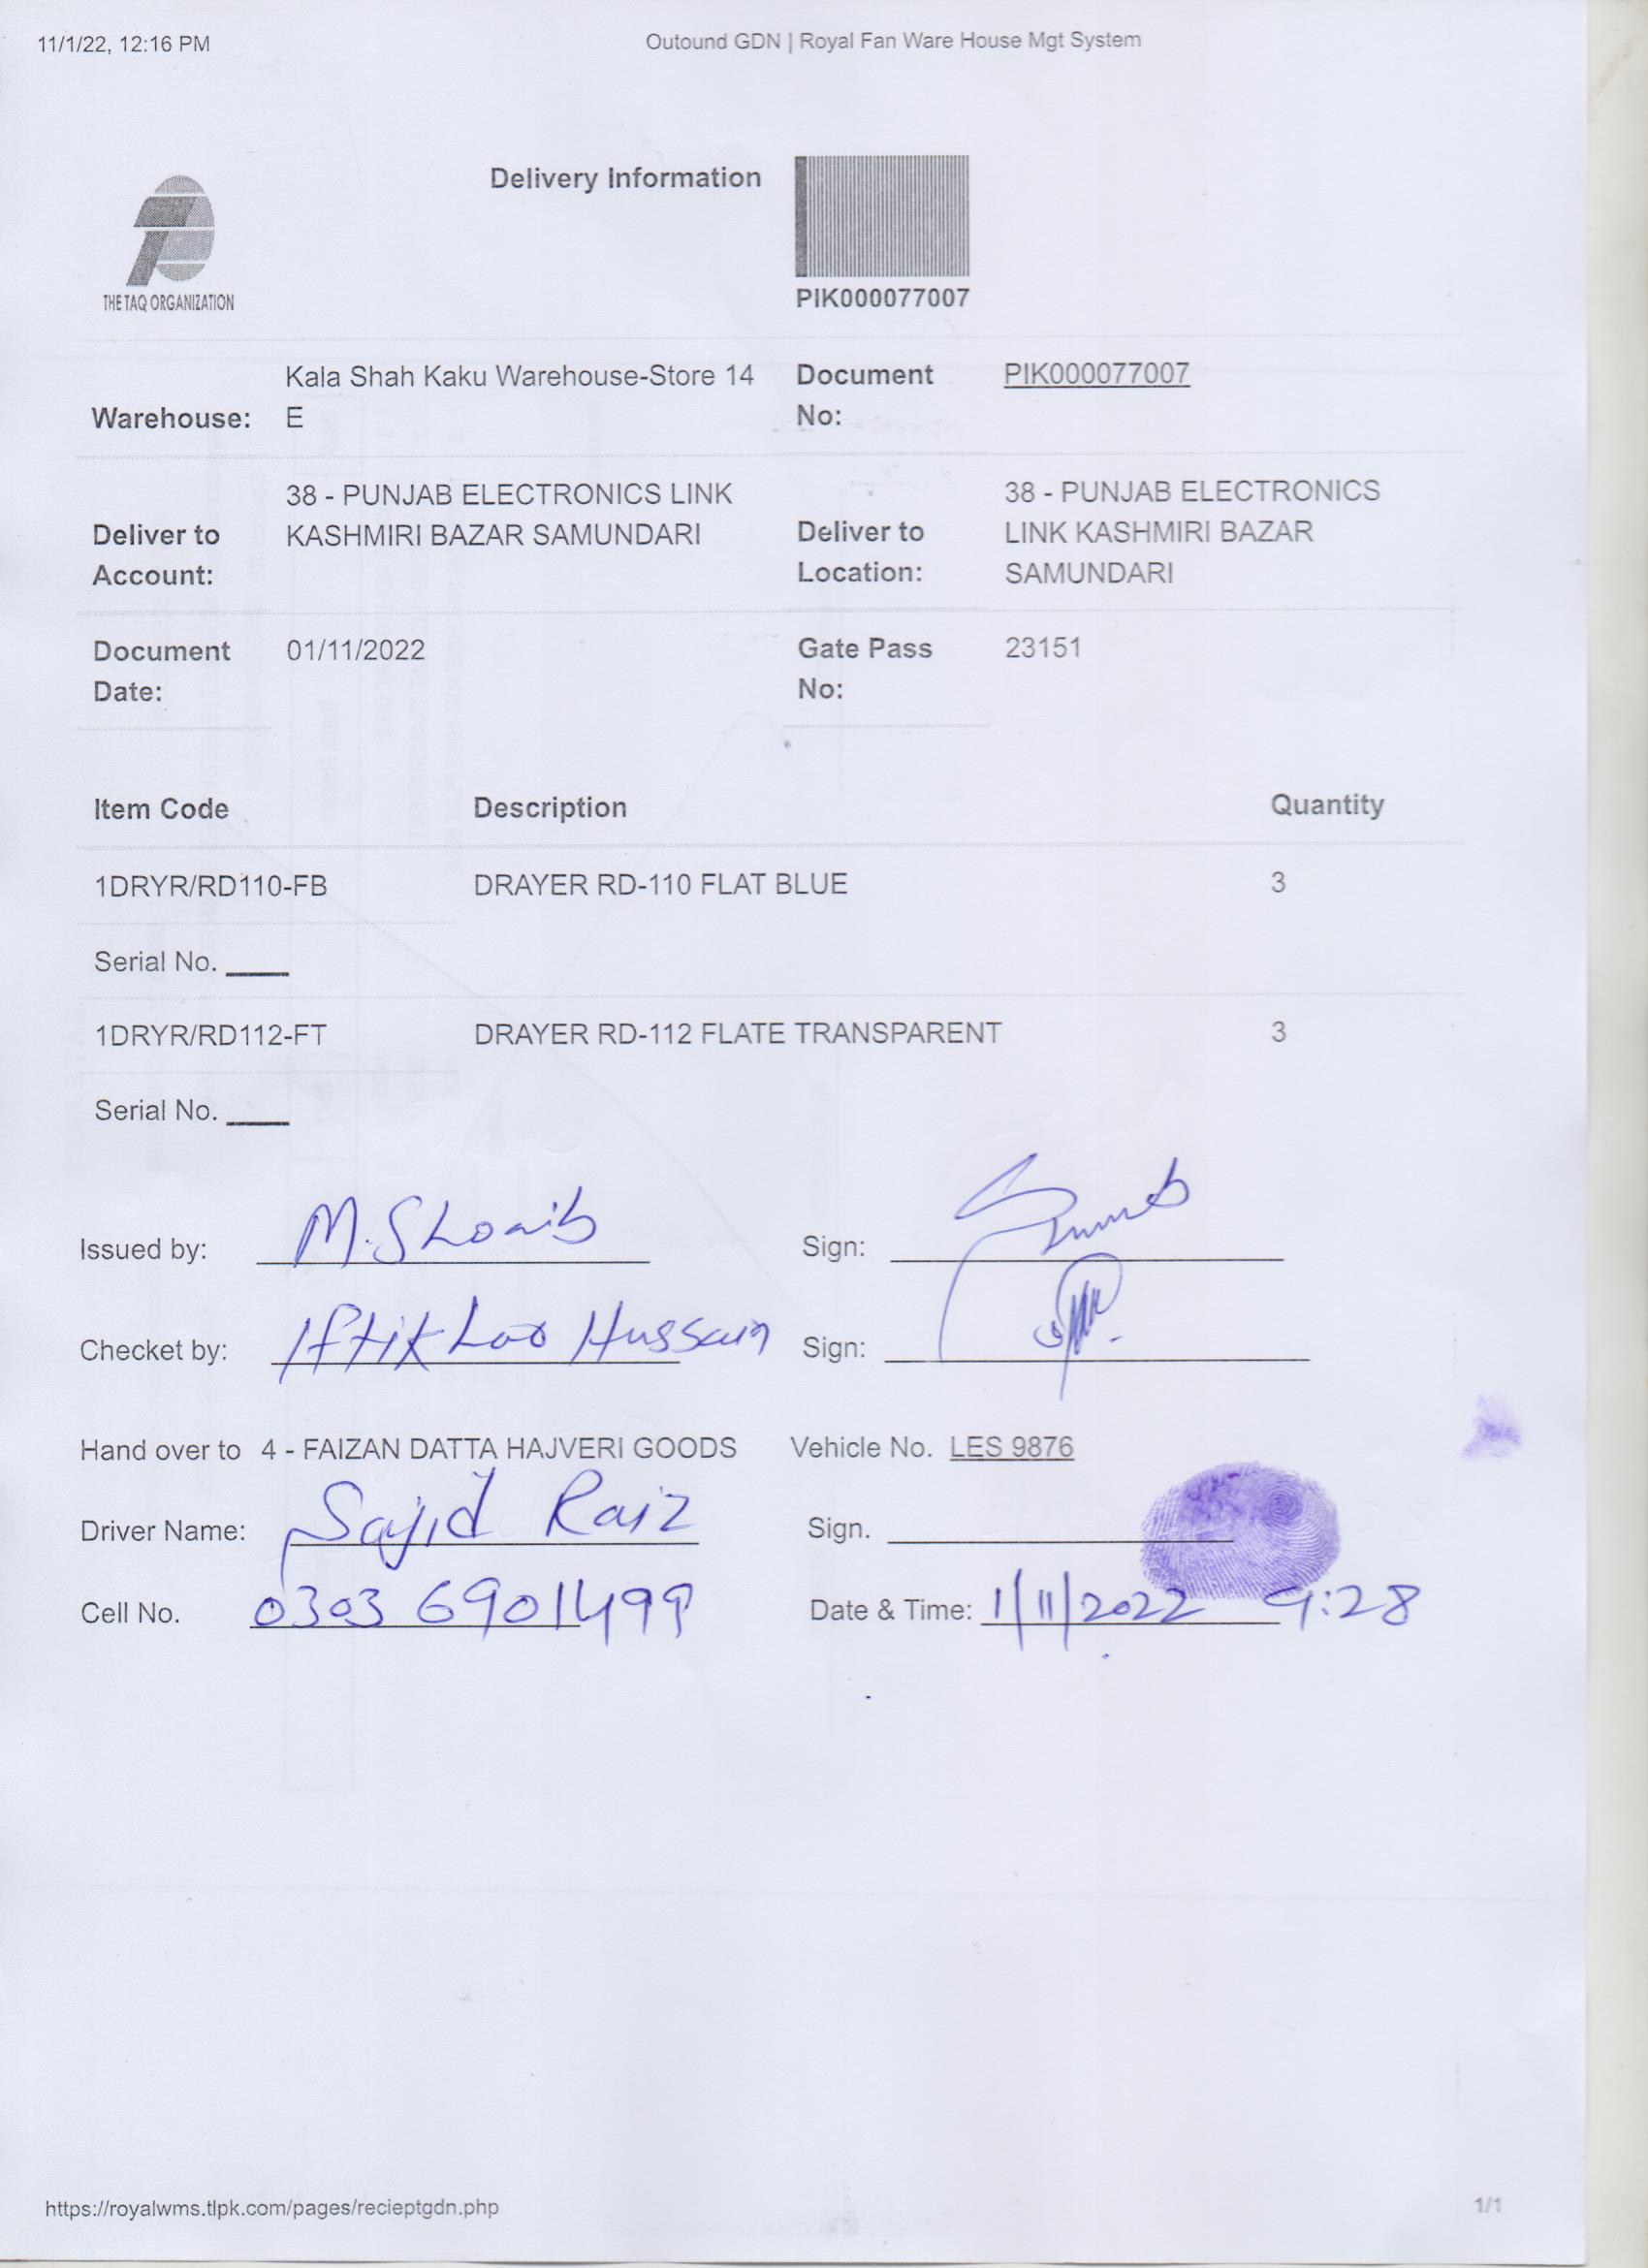 11/1/22, 12:16 PM
Outound GDN | Royal Fan Ware House Mgt System
THE TAQ ORGANIZATION
Delivery Information
PIK000077007
Warehouse: Kala Shah Kaku Warehouse-Store 14 E
Document No: PIK000077007
Deliver to Account: 38 - PUNJAB ELECTRONICS LINK KASHMIRI BAZAR SAMUNDARI
Deliver to Location: 38 - PUNJAB ELECTRONICS LINK KASHMIRI BAZAR SAMUNDARI
Document Date: 01/11/2022
Gate Pass No: 23151
Item Code Description Quantity
1DRYR/RD110-FB DRAYER RD-110 FLAT BLUE 3
Serial No. ____
1DRYR/RD112-FT DRAYER RD-112 FLATE TRANSPARENT 3
Serial No. ____
Issued by: M. Shoaib Sign:
Checket by: Iftikhar Hussain Sign:
Hand over to 4 - FAIZAN DATTA HAJVERI GOODS Vehicle No. LES 9876
Driver Name: Sajid Raiz Sign.
Cell No. 0303 6901499 Date & Time: 1/11/2022 9:28
https://royalwms.tlpk.com/pages/recieptgdn.php
1/1